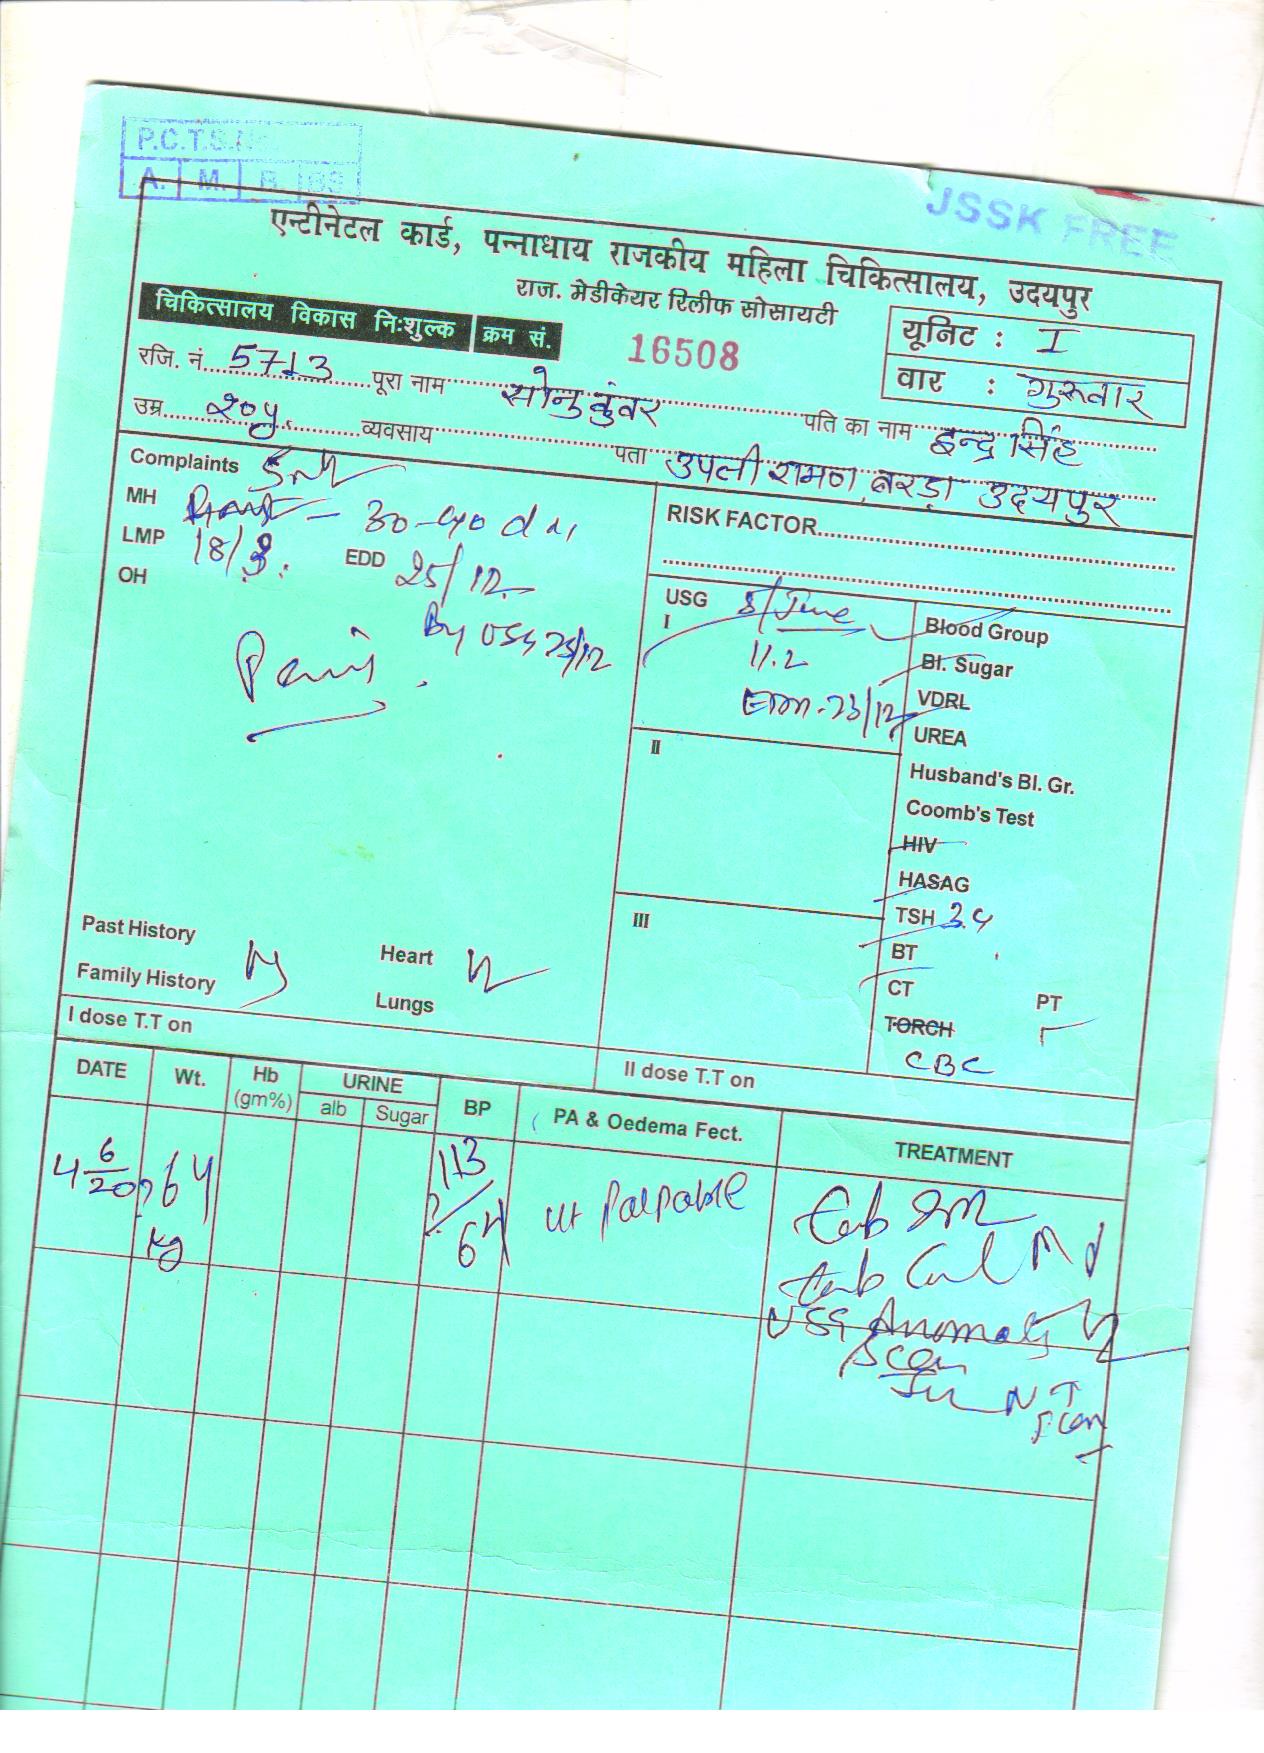 P.C.T.S.No.
A. M. B.
JSSK FREE
एन्टीनेटल कार्ड, पन्नाधाय राजकीय महिला चिकित्सालय, उदयपुर
राज. मेडीकेयर रिलीफ सोसायटी
चिकित्सालय विकास निःशुल्क क्रम सं. 16508
यूनिट : I
वार : गुरूवार
रजि. नं. 5713 पूरा नाम सोनु कुंवर पति का नाम इन्द्र सिंह
उम्र 20y. व्यवसाय पता उपली रामण, बरड़ा उदयपुर
Complaints
MH 30-40 d
LMP 18/3. EDD 25/12
By USG 25/12
OH
RISK FACTOR
USG 5/June
I
11.2
23/12
II
III
Blood Group
Bl. Sugar
VDRL
UREA
Husband's Bl. Gr.
Coomb's Test
HIV
HASAG
TSH 3.4
BT
CT PT
TORCH
CBC
Past History
Family History
Heart
Lungs
I dose T.T on
II dose T.T on
DATE Wt. Hb (gm%) URINE alb Sugar BP PA & Oedema Fect. TREATMENT
4 6/20 64 kg 113/64 ut palpable
tab
tab Cal
USG Anomaly
Scan
NT
scan